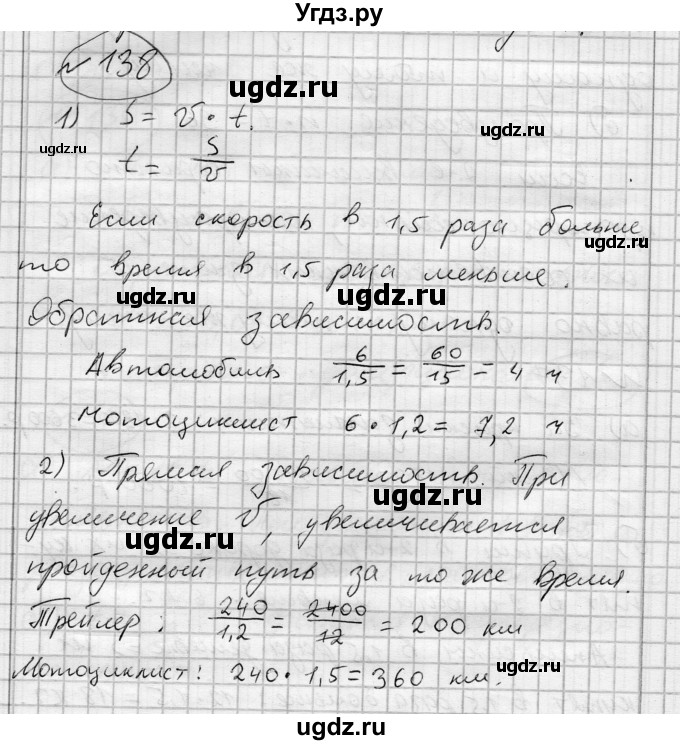 Угдз.ру
№ 138
ugdz.ru
1) S = v · t.
ugdz.ru
ugdz.ru
t = S/v
Если скорость в 1,5 раза больше
ugdz.ru
то время в 1,5 раза меньше.
ugdz.ru
ugdz.ru
Обратная зависимость.
Автомобиль 6/1,5 = 60/15 = 4 ч
Мотоциклист 6 · 1,2 = 7,2 ч
2) Прямая зависимость. При
ugdz.ru
увеличение v, увеличивается
ugdz.ru
пройденный путь за то же время.
Трейлер: 240/1,2 = 2400/12 = 200 км
ugdz.ru
ugdz.ru
Мотоциклист: 240 · 1,5 = 360 км.
ugdz.ru